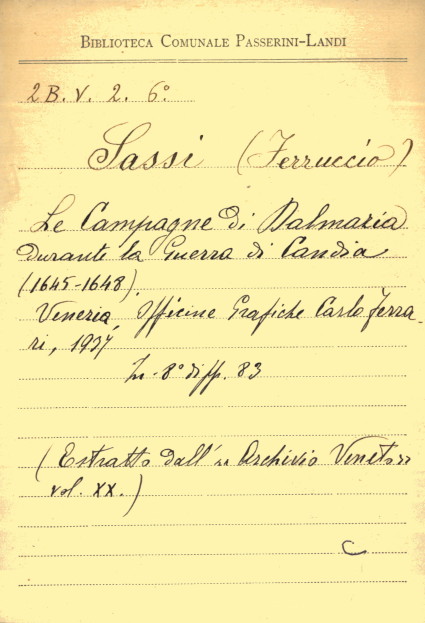 BIBLIOTECA COMUNALE PASSERINI-LANDI
2B. V. 2. 6º.
Sassi (Ferruccio)
Le Campagne di Dalmazia
durante la Guerra di Candia
(1645-1648).
Venezia, Officine Grafiche Carlo Ferra-
ri, 1937
In-8º di pp. 83
(Estratto dall'"Archivio Veneto"
vol. XX.)
C